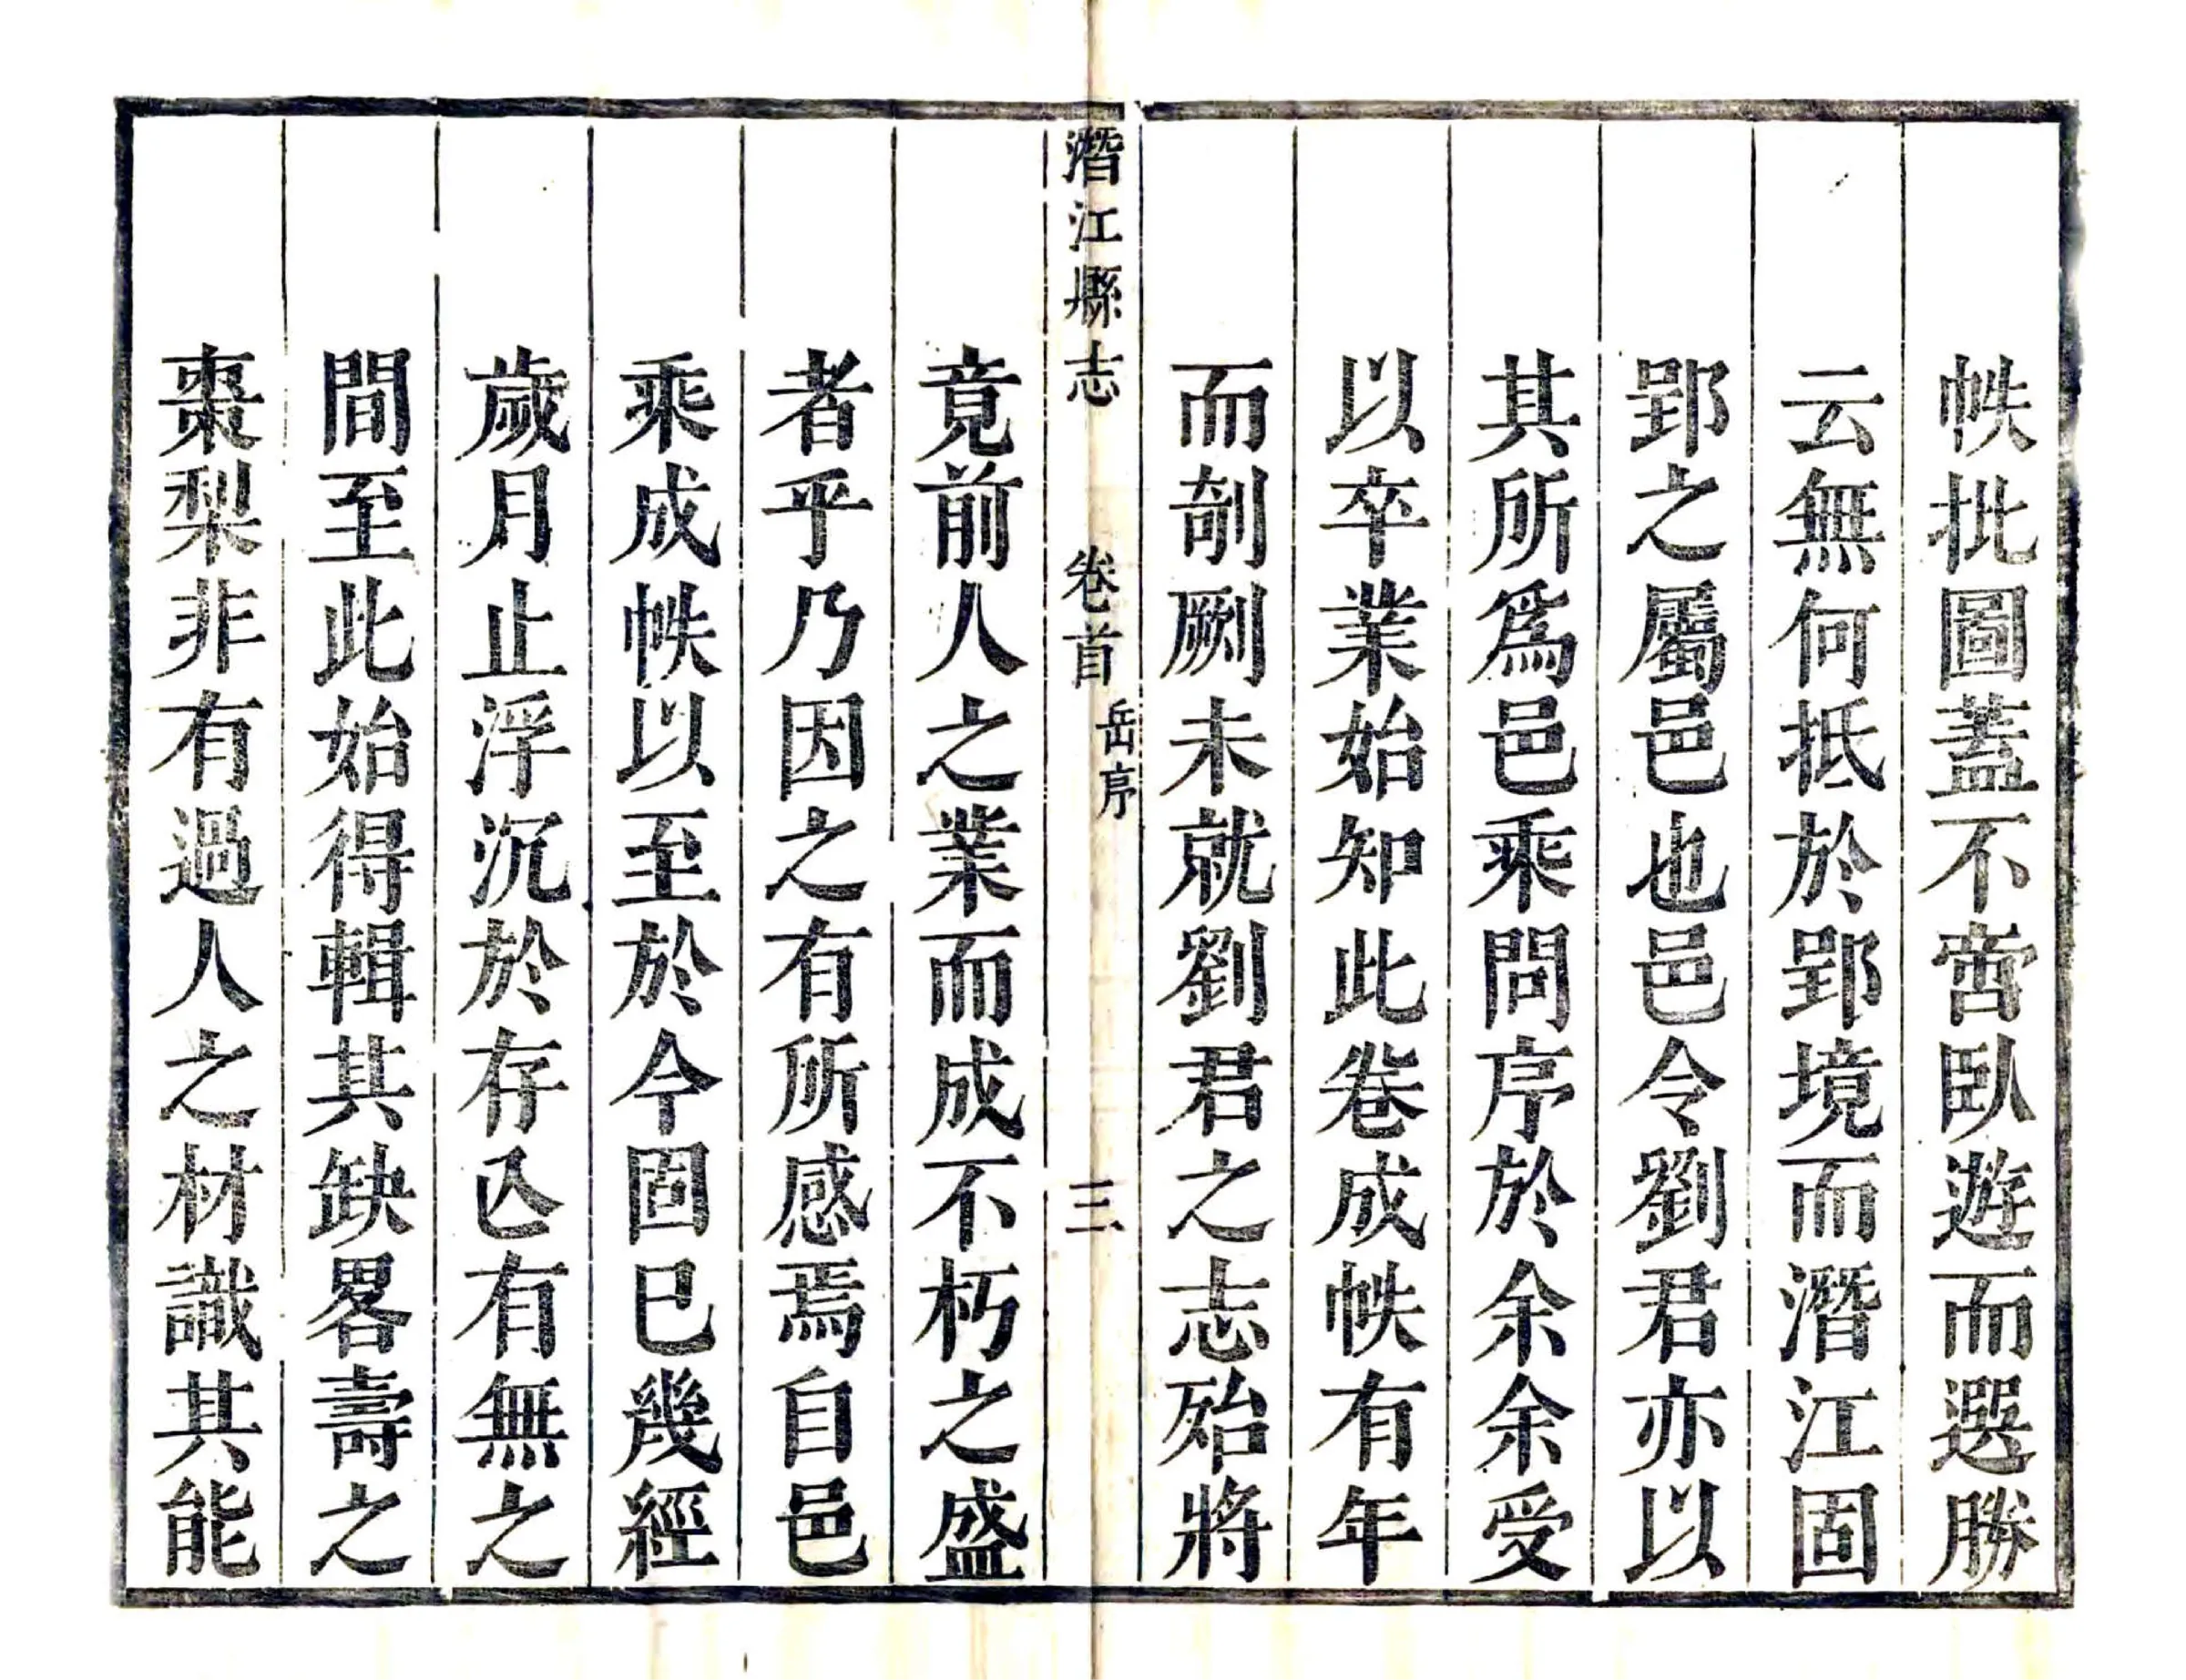 帙批圖蓋不啻臥遊而選勝
云無何抵於郢境而潛江固
郢之屬邑也邑令劉君亦以
其所爲邑乘問序於余余受
以卒業始知此卷成帙有年
而剞劂未就劉君之志殆將
潛江縣志 卷首 岳序 三
竟前人之業而成不朽之盛
者乎乃因之有所感焉自邑
乘成帙以至於今固已幾經
歲月止浮沉於存亾有無之
間至此始得輯其缺畧壽之
棗梨非有過人之材識其能